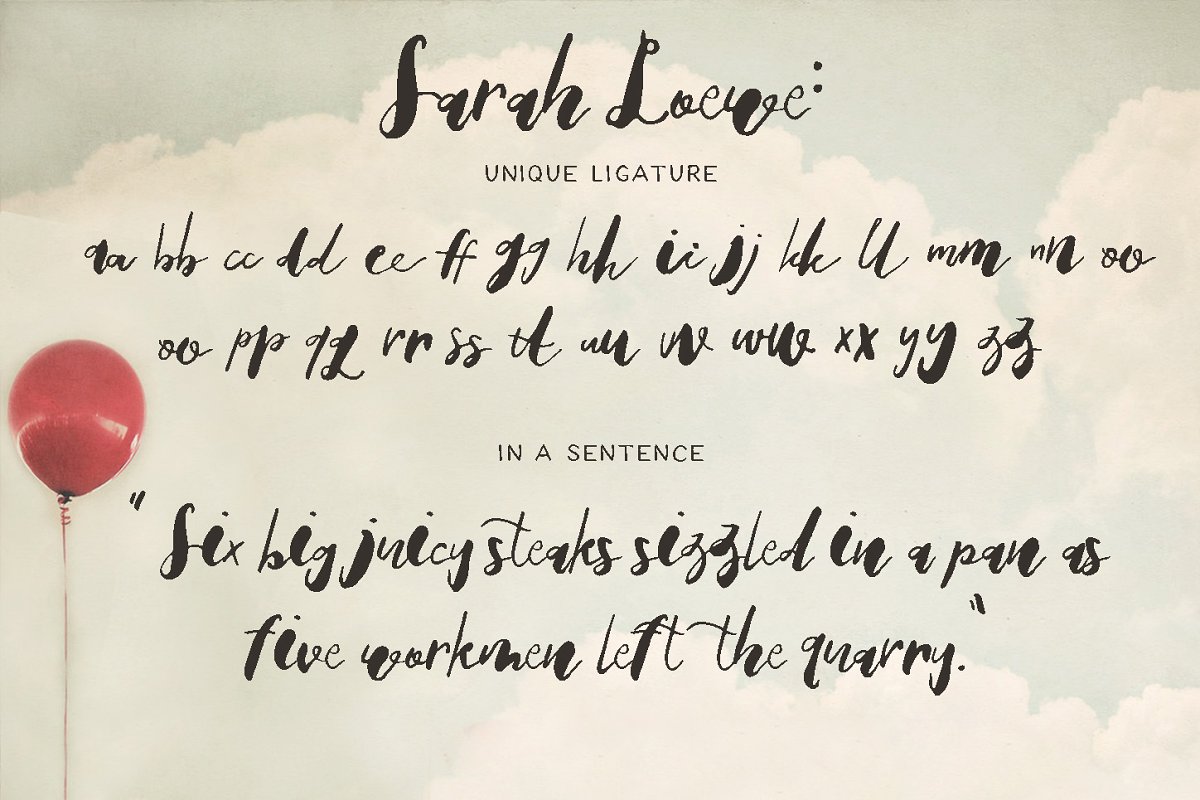 Sarah Loewe:
UNIQUE LIGATURE
aa bb cc dd ee ff gg hh ii jj kk ll mm nn oo
oo pp qq rr ss tt uu vv ww xx yy zz
IN A SENTENCE
"Six big juicy steaks sizzled in a pan as
five workmen left the quarry."